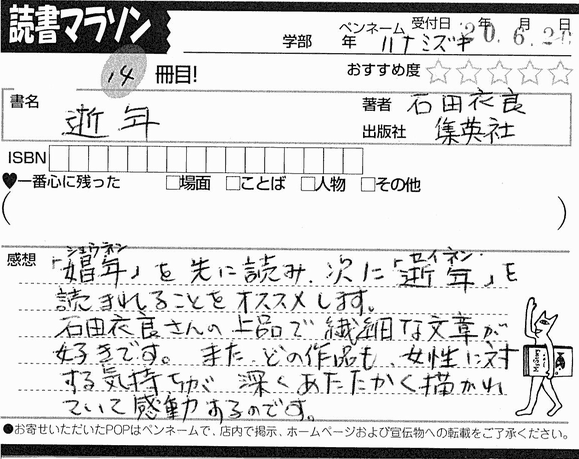 読書マラソン
学部 年 ペンネーム ハナミズキ 受付日 20年6月2 日
14 冊目!
おすすめ度 ☆☆☆☆☆
書名 逝年
著者 石田衣良
出版社 集英社
ISBN
♥一番心に残った □場面 □ことば □人物 □その他
( )
感想
ショウネン セイネン
「娼年」を先に読み、次に「逝年」を
読まれることをオススメします。
石田衣良さんの上品で繊細な文章が
好きです。また、どの作品も、女性に対
する気持ちが、深くあたたかく描かれ
ていて感動するのです。
●お寄せいただいたPOPはペンネームで、店内で掲示、ホームページおよび宣伝物への転載をご了承ください。